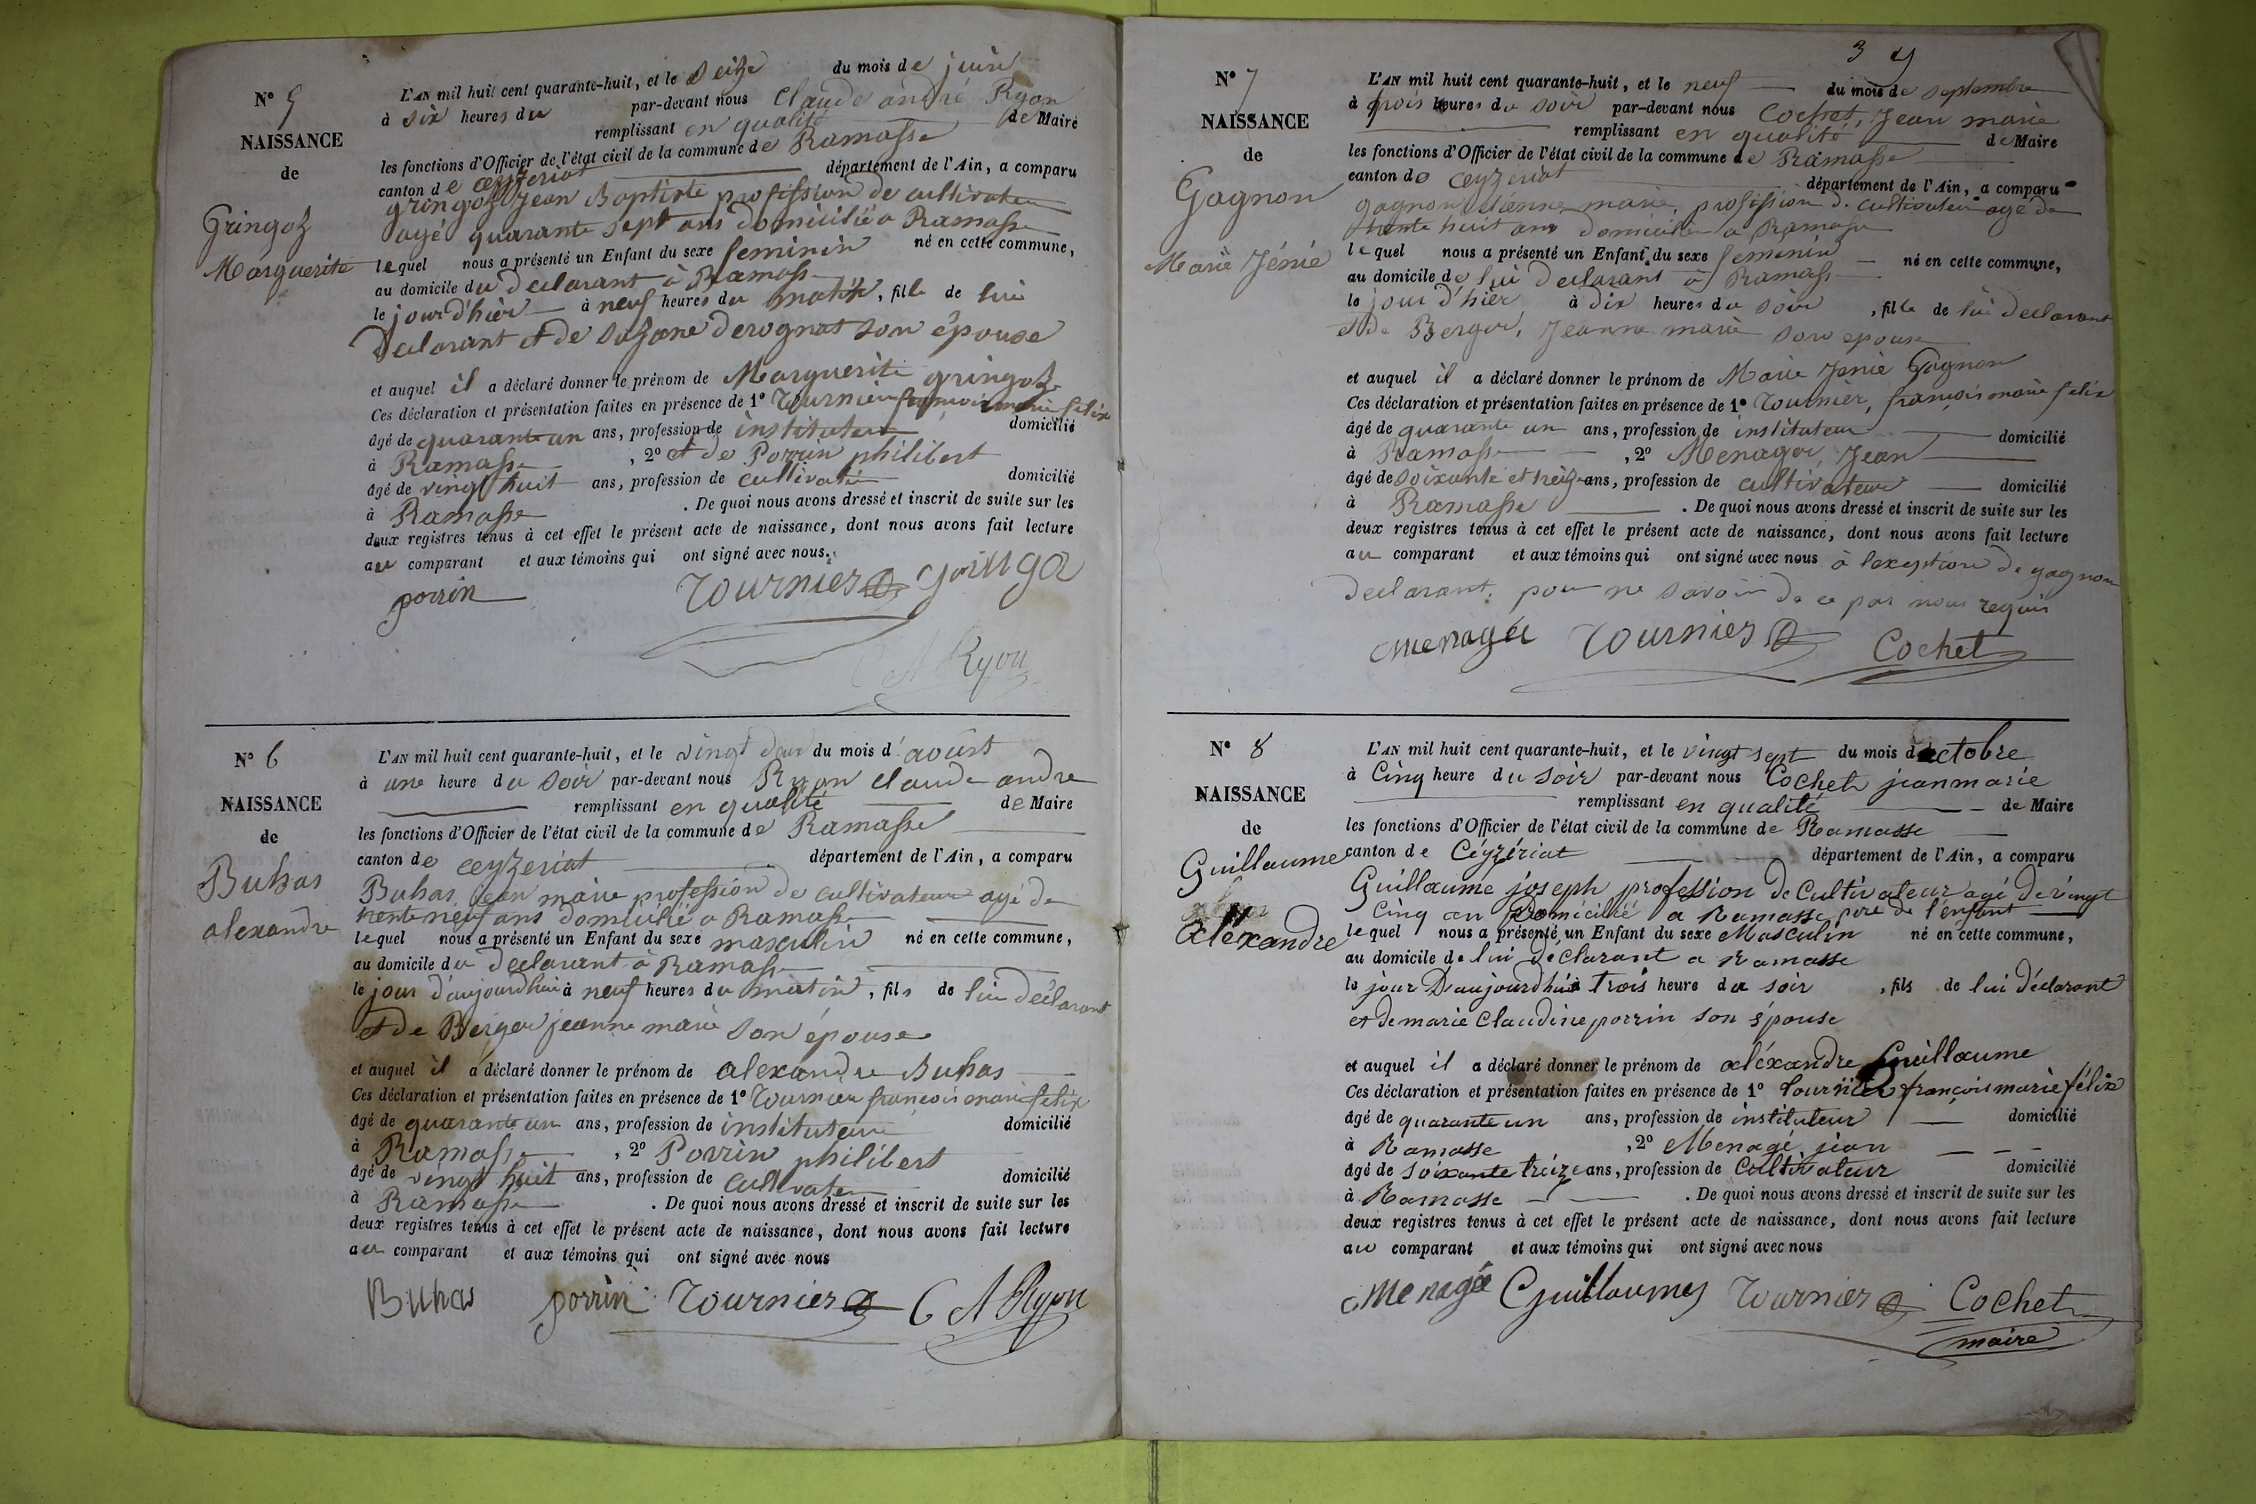 N° 5
NAISSANCE
de
Gringoz
Marguerite
L'AN mil huit cent quarante-huit, et le seize du mois de juin
à six heures du par-devant nous Claude andré Ryon
remplissant en qualité de Maire
les fonctions d'Officier de l'état civil de la commune de Ramasse
canton de ceyzeriat département de l'Ain, a comparu
gringoz Jean Baptiste profession de cultivateur
agé quarante sept ans domicilié a Ramasse
lequel nous a présenté un Enfant du sexe feminin né en cette commune,
au domicile du declarant à Ramasse
le jour d'hièr à neuf heures du matin, fille de lui
Declarant et de suzane derognat son épouse
et auquel il a déclaré donner le prénom de Marguerite gringoz
Ces déclaration et présentation faites en présence de 1° Tournier françois marie felix
âgé de quarante un ans, profession de instituteur domicilié
à Ramasse , 2° et de Porrin philibert
âgé de vingt huit ans, profession de cultivateur domicilié
à Ramasse . De quoi nous avons dressé et inscrit de suite sur les
deux registres tenus à cet effet le présent acte de naissance, dont nous avons fait lecture
au comparant et aux témoins qui ont signé avec nous.
porrin Tournier gringoz
C A Ryon
N° 6
NAISSANCE
de
Buhas
alexandre
L'AN mil huit cent quarante-huit, et le vingt deux du mois d'août
à une heure du soir par-devant nous Ryon claude andre
remplissant en qualité de Maire
les fonctions d'Officier de l'état civil de la commune de Ramasse
canton de ceyzeriat département de l'Ain, a comparu
Buhas jean marie profession de cultivateur agé de
trente neuf ans domicilié a Ramasse
lequel nous a présenté un Enfant du sexe masculin né en cette commune,
au domicile du declarant à Ramasse
le jour d'aujourdhui à neuf heures du matin, fils de lui déclarant
et de Berger jeanne marie son épouse
et auquel il a déclaré donner le prénom de alexandre Buhas
Ces déclaration et présentation faites en présence de 1° Tournier françois marie felix
âgé de quarante un ans, profession de instituteur domicilié
à Ramasse , 2° Porrin philibert
âgé de vingt huit ans, profession de cultivateur domicilié
à Ramasse . De quoi nous avons dressé et inscrit de suite sur les
deux registres tenus à cet effet le présent acte de naissance, dont nous avons fait lecture
au comparant et aux témoins qui ont signé avec nous
Buhas porrin Tournier C A Ryon
3
N° 7
NAISSANCE
de
Gagnon
Marie Jénie
L'AN mil huit cent quarante-huit, et le neuf du mois de septembre
à trois heures du soir par-devant nous Cochet, Jean marie
remplissant en qualité de Maire
les fonctions d'Officier de l'état civil de la commune de Ramasse
canton de ceyzeriat département de l'Ain, a comparu
gagnon etienne marie, profession de cultivateur agé de
trente huit ans domicilié a Ramasse
lequel nous a présenté un Enfant du sexe feminin né en cette commune,
au domicile de lui declarant à Ramasse
le jour d'hier à dix heures du soir , fille de lui declarant
et de Berger, Jeanne marie son epouse
et auquel il a déclaré donner le prénom de Marie Jenie Gagnon
Ces déclaration et présentation faites en présence de 1° Tournier, françois marie felix
âgé de quarante un ans, profession de instituteur domicilié
à Ramasse , 2° Menager, Jean
âgé de soixante et treize ans, profession de cultivateur domicilié
à Ramasse . De quoi nous avons dressé et inscrit de suite sur les
deux registres tenus à cet effet le présent acte de naissance, dont nous avons fait lecture
au comparant et aux témoins qui ont signé avec nous à l'exeption de gagnon
declarant, pour ne savoir de ce par nous requis
Menagé Tournier Cochet
N° 8
NAISSANCE
de
Guillaume
aléxandre
L'AN mil huit cent quarante-huit, et le vingt sept du mois d'octobre
à Cinq heure du soir par-devant nous Cochet jean marie
remplissant en qualité de Maire
les fonctions d'Officier de l'état civil de la commune de Ramasse
canton de Céyzériat département de l'Ain, a comparu
Guillaume joseph proféssion de Cultivateur agé de vingt
Cinq an Domicilié a Ramasse pere de l'énfant
lequel nous a présenté un Enfant du sexe Masculin né en cette commune,
au domicile de lui déclarant a Ramasse
le jour D'aujourdhui à trois heure du soir , fils de lui déclarant
et de marie Claudine porrin son épouse
et auquel il a déclaré donner le prénom de aléxandre Guillaume
Ces déclaration et présentation faites en présence de 1° tournier françois marie félix
âgé de quarante un ans, profession de instituteur domicilié
à Ramasse , 2° Menagé jean
âgé de soixante treize ans, profession de Cultivateur domicilié
à Ramasse . De quoi nous avons dressé et inscrit de suite sur les
deux registres tenus à cet effet le présent acte de naissance, dont nous avons fait lecture
au comparant et aux témoins qui ont signé avec nous
Menagé Guillaume Tournier Cochet
maire